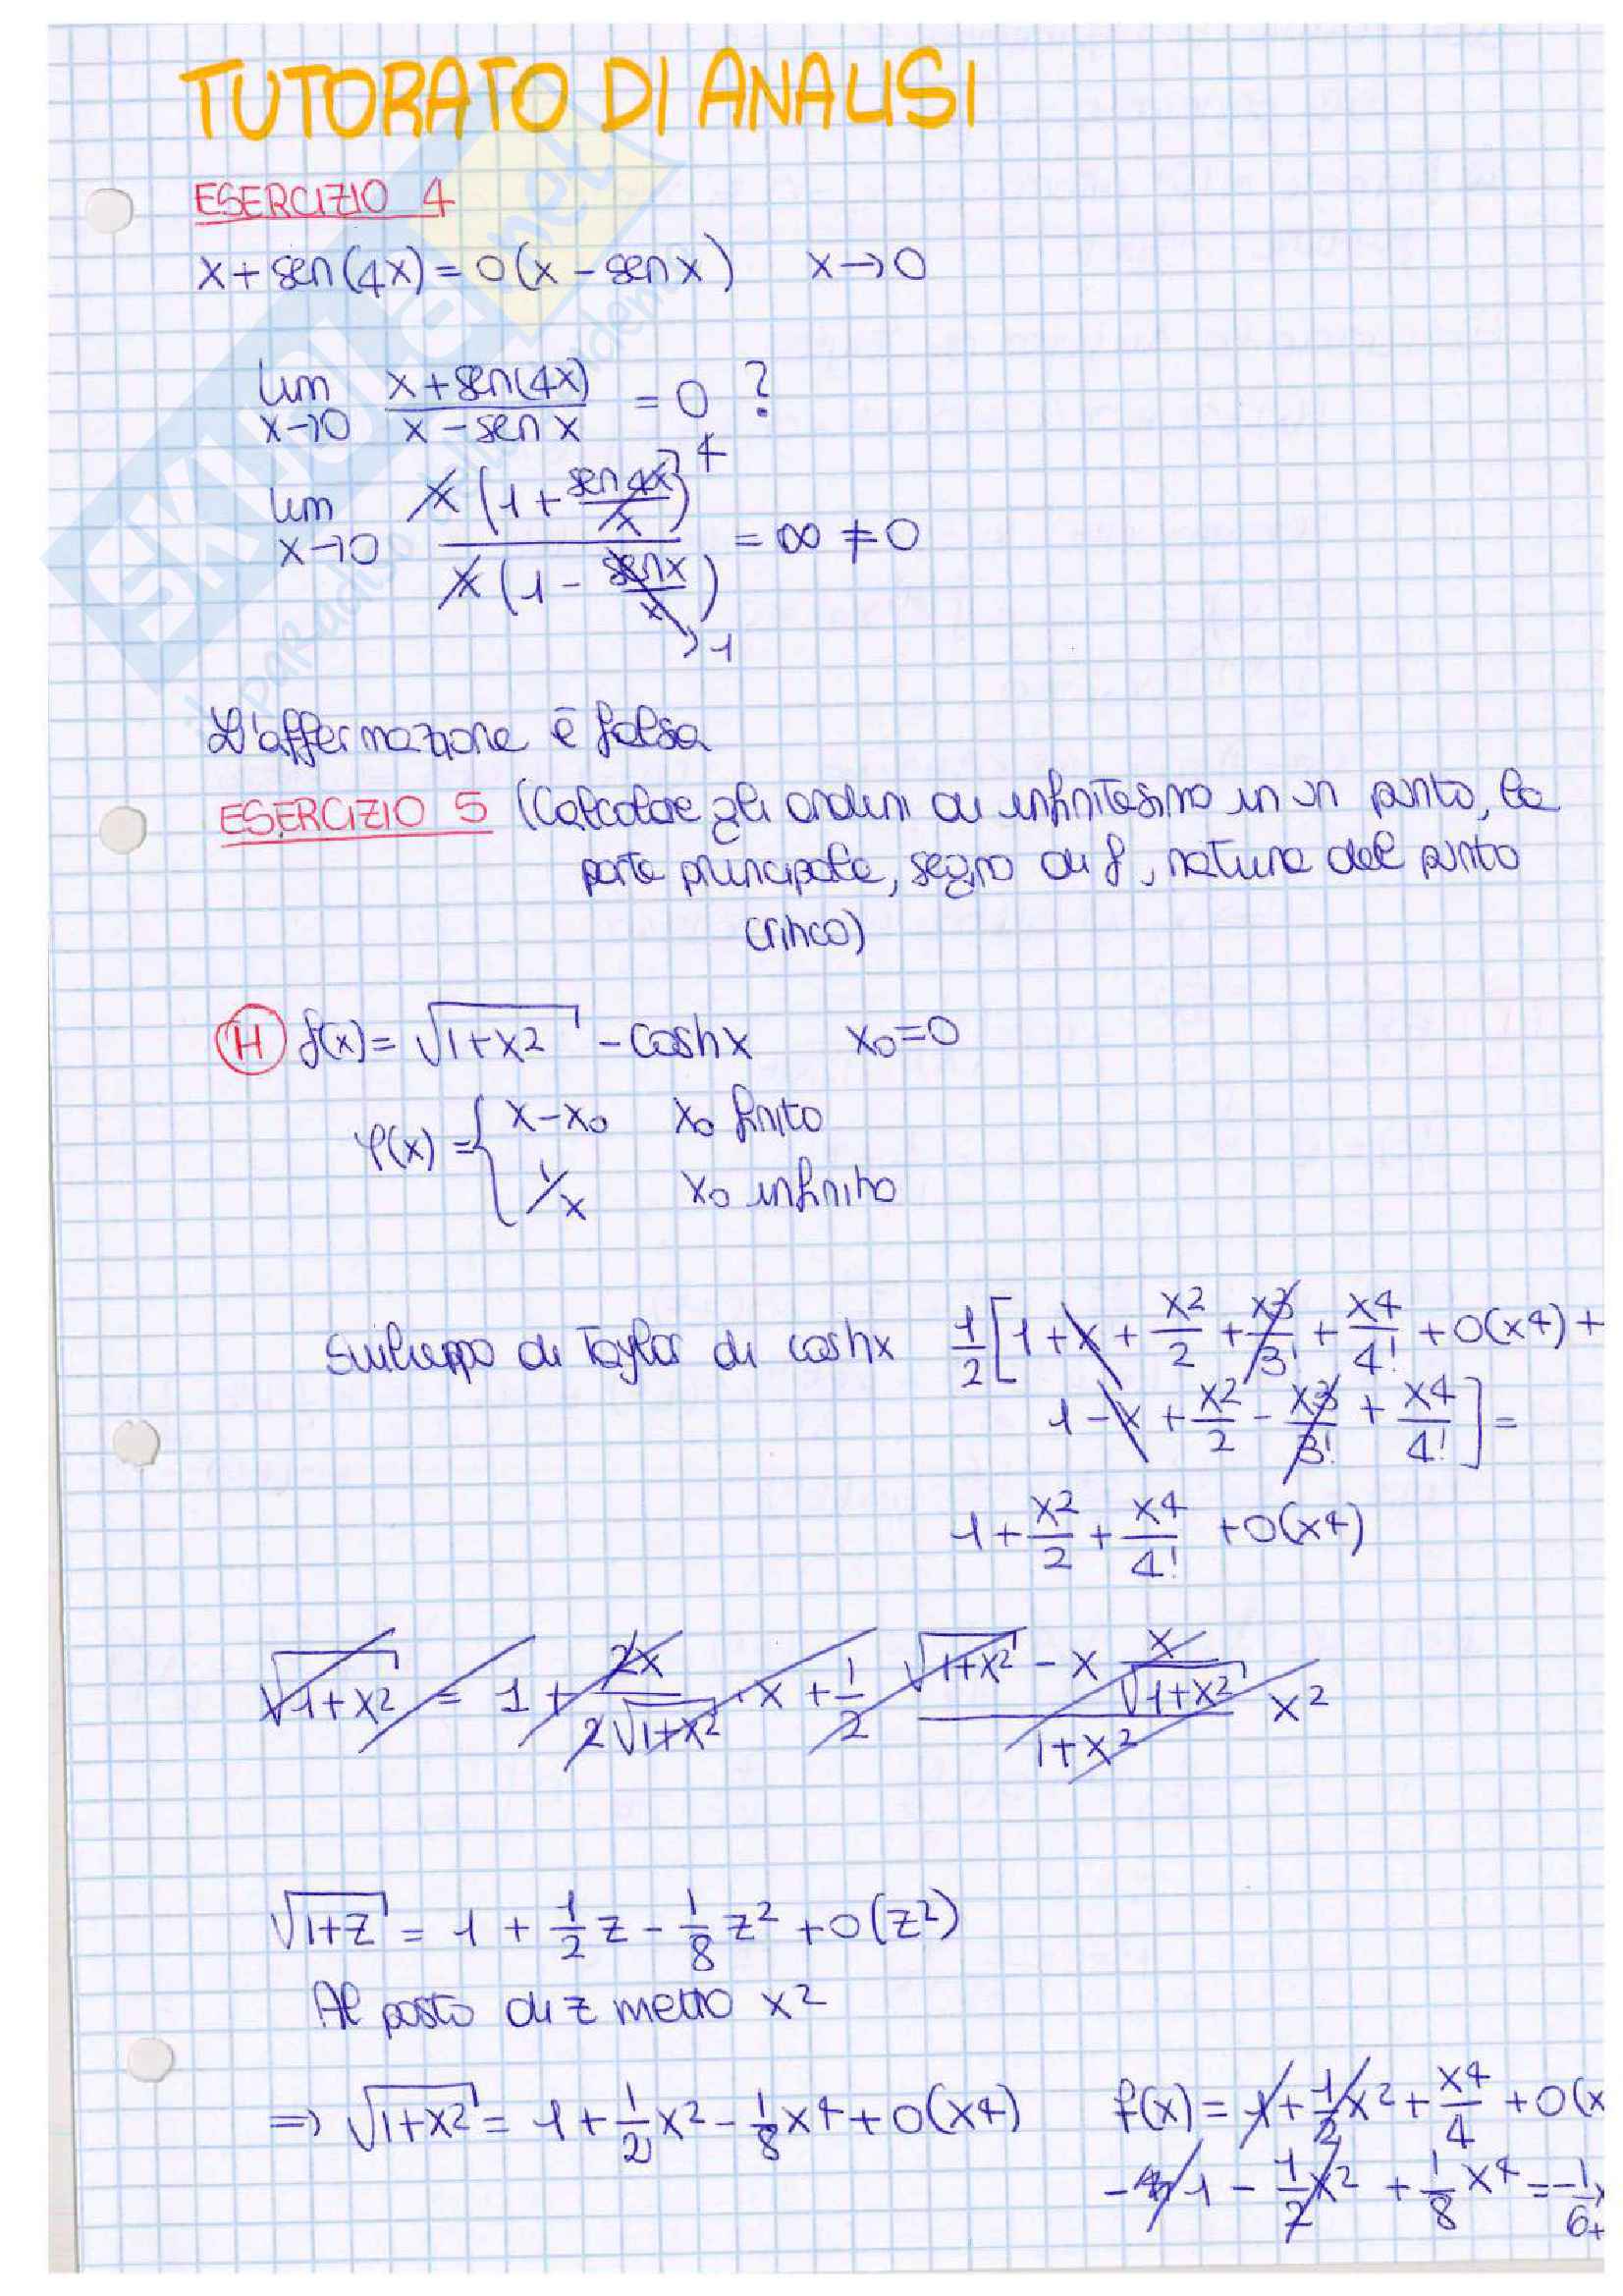 TUTORATO DI ANALISI
ESERCIZIO 4
x + sen(4x) = o(x - sen x)   x→0
lim x→0 (x + sen(4x))/(x - sen x) = 0 ?
lim x→0 x(1 + sen 4x/x)→4 / x(1 - sen x/x)→1 = ∞ ≠ 0
L'affermazione è falsa
ESERCIZIO 5 (Calcolare gli ordini di infinitesimo in un punto, la
parte principale, segno di f, natura del punto
critico)
(H) f(x) = √(1+x²) - coshx   x₀=0
φ(x) = { x-x₀   x₀ finito
1/x   x₀ infinito
Sviluppo di Taylor di coshx   1/2 [1 + x + x²/2 + x³/3! + x⁴/4! + o(x⁴) +
1 - x + x²/2 - x³/3! + x⁴/4!] =
1 + x²/2 + x⁴/4! + o(x⁴)
√(1+x²) = 1 + 2x/(2√(1+x²)) · x + 1/2 (√(1+x²) - x x/√(1+x²))/(1+x²) x²
√(1+z) = 1 + 1/2 z - 1/8 z² + o(z²)
Al posto di z metto x²
⇒ √(1+x²) = 1 + 1/2 x² - 1/8 x⁴ + o(x⁴)   f(x) = 1 + 1/2 x² + x⁴/4 + o(x
- 1 - 1/2 x² + 1/8 x⁴ = -1/6